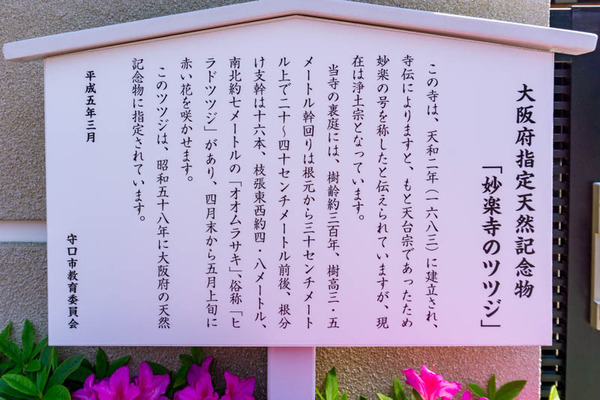 大阪府指定天然記念物
「妙楽寺のツツジ」
この寺は、天和二年（一六八三）に建立され、
寺伝によりますと、もと天台宗であったため
妙楽の号を称したと伝えられていますが、現
在は浄土宗となっています。
当寺の裏庭には、樹齢約三百年、樹高三・五
メートル幹回りは根元から三十センチメート
ル上で二十～四十センチメートル前後、根分
け支幹は十六本、枝張東西約四・八メートル、
南北約七メートルの「オオムラサキ」、俗称「ヒ
ラドツツジ」があり、四月末から五月上旬に
赤い花を咲かせます。
このツツジは、昭和五十八年に大阪府の天然
記念物に指定されています。
平成五年三月
守口市教育委員会